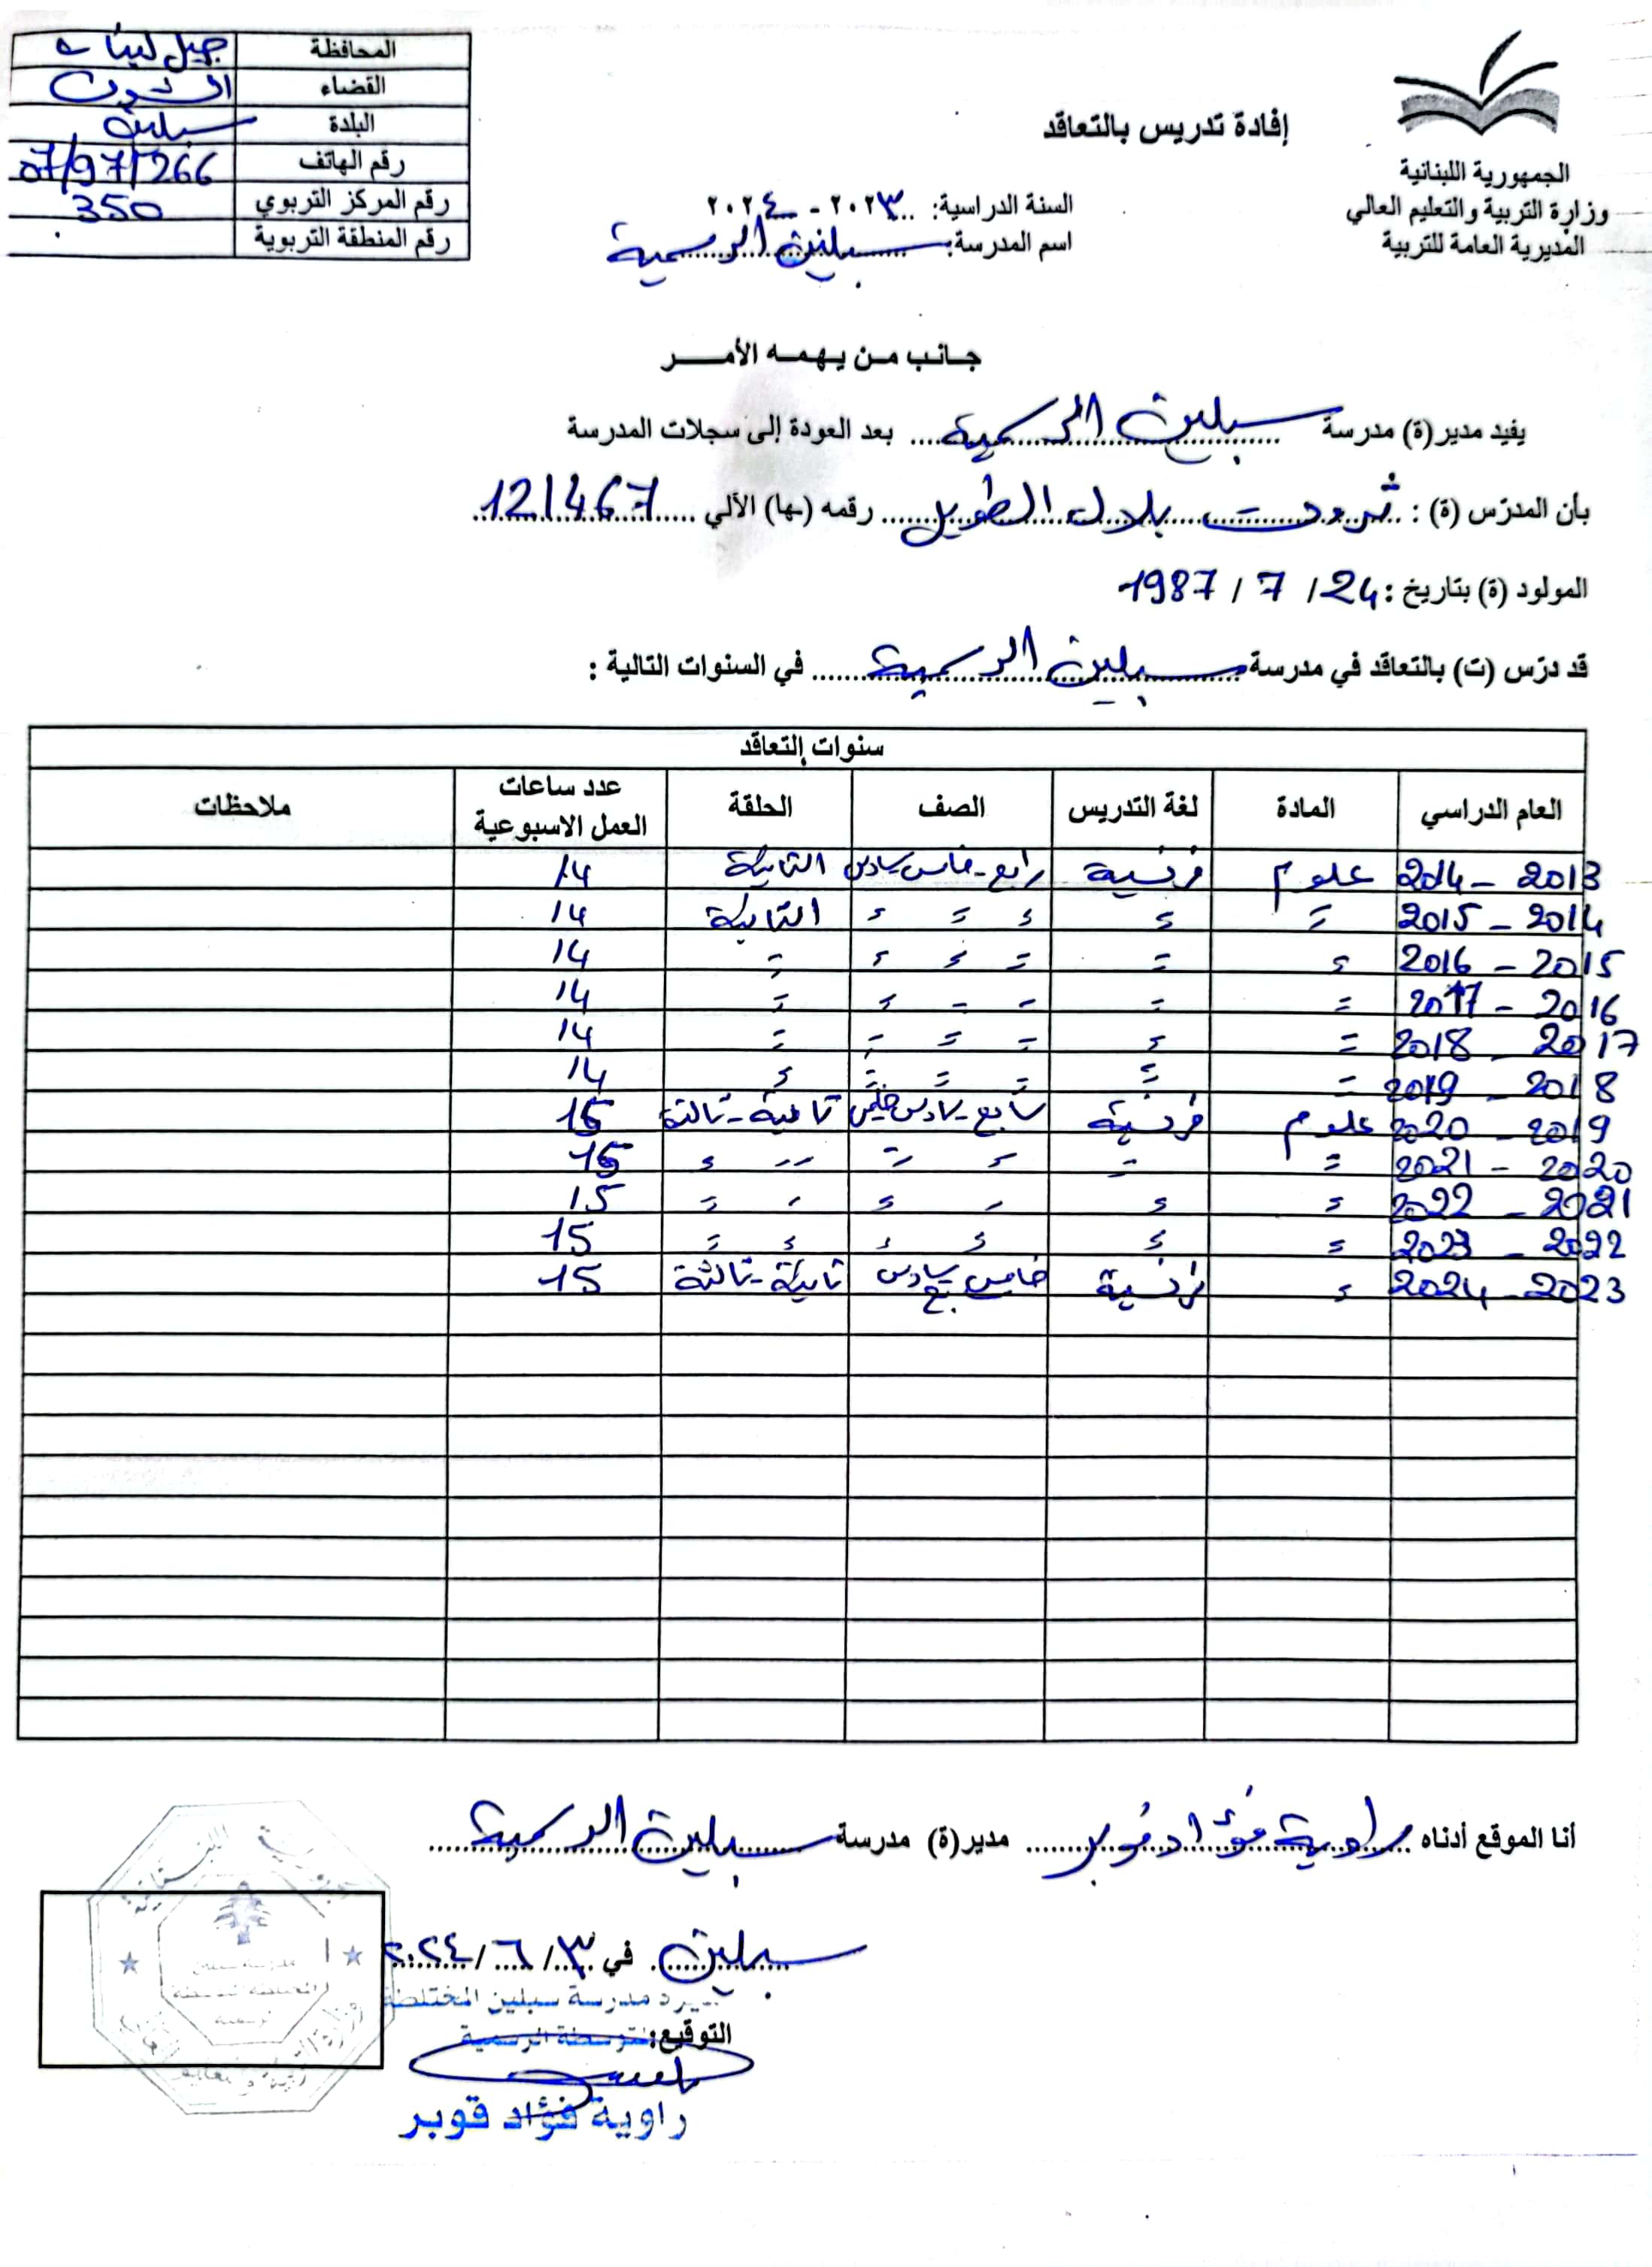 الجمهورية اللبنانية
وزارة التربية والتعليم العالي
المديرية العامة للتربية
إفادة تدريس بالتعاقد
السنة الدراسية: ٢٠٢٣ - ٢٠٢٤
اسم المدرسة: سبلين الرسمية
المحافظة جبل لبنان
القضاء الشوف
البلدة سبلين
رقم الهاتف 07/971266
رقم المركز التربوي 350
رقم المنطقة التربوية
جانب من يهمه الأمر
يفيد مدير(ة) مدرسة سبلين الرسمية بعد العودة إلى سجلات المدرسة
بأن المدرّس (ة) : ثروت بلال الطويل رقمه (ها) الألي 121467
المولود (ة) بتاريخ : 24 / 7 / 1987
قد درّس (ت) بالتعاقد في مدرسة سبلين الرسمية في السنوات التالية :
سنوات التعاقد
العام الدراسي المادة لغة التدريس الصف الحلقة عدد ساعات العمل الاسبوعية ملاحظات
2013 - 2014 علوم فرنسية رابع - خامس - سادس الثانية 14
2014 - 2015 = = = = = الثانية 14
2015 - 2016 = = = = = = 14
2016 - 2017 = = = = = = 14
2017 - 2018 = = = = = = 14
2018 - 2019 = = = = = = 14
2019 - 2020 علوم فرنسية سابع - سادس خامس ثانية - ثالثة 15
2020 - 2021 = = = = = = 15
2021 - 2022 = = = = = = 15
2022 - 2023 = = = = = = 15
2023 - 2024 = فرنسية خامس - سادس ثانية - ثالثة 15
أنا الموقع أدناه راوية فؤاد قوبر مدير(ة) مدرسة سبلين الرسمية
سبلين في ٣ / ٦ / ٢٠٢٤
مدرسة سبلين المختلطة
التوقيع:
راوية فؤاد قوبر